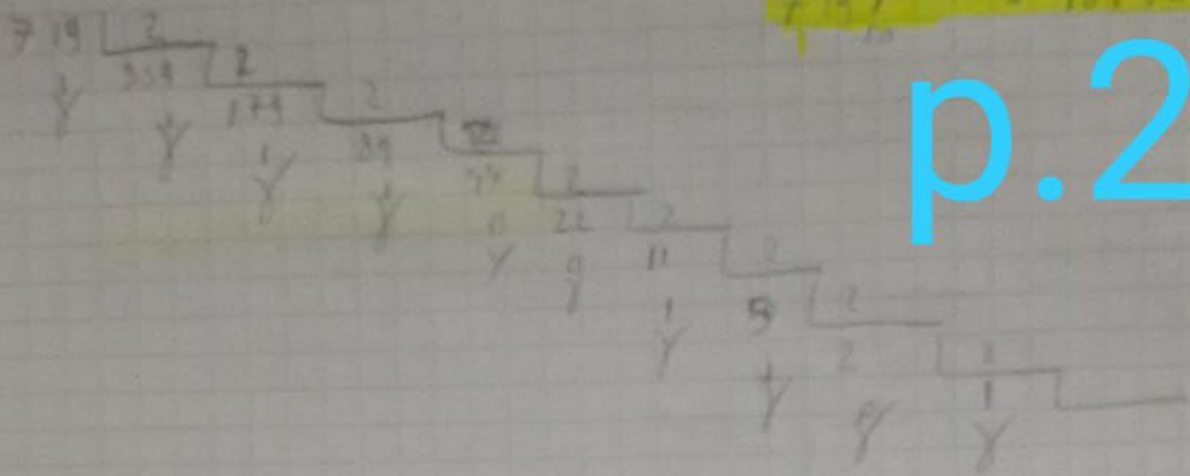 p.2
719 2
359 2
1 1 179 2
1 89 2
1 44 2
0 22 2
0 11 2
1 5 2
1 2 2
0 1